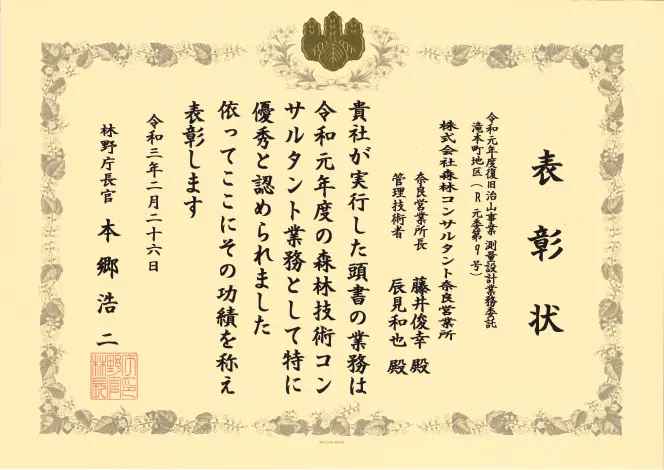 表彰状
令和元年度復旧治山事業 測量設計業務委託
滝本町地区(R元委第9号)
株式会社森林コンサルタント奈良営業所
奈良営業所長 藤井俊幸 殿
管理技術者 辰見和也 殿
貴社が実行した頭書の業務は
令和元年度の森林技術コン
サルタント業務として特に
優秀と認められました
依ってここにその功績を称え
表彰します
令和三年二月二十六日
林野庁長官 本郷浩二